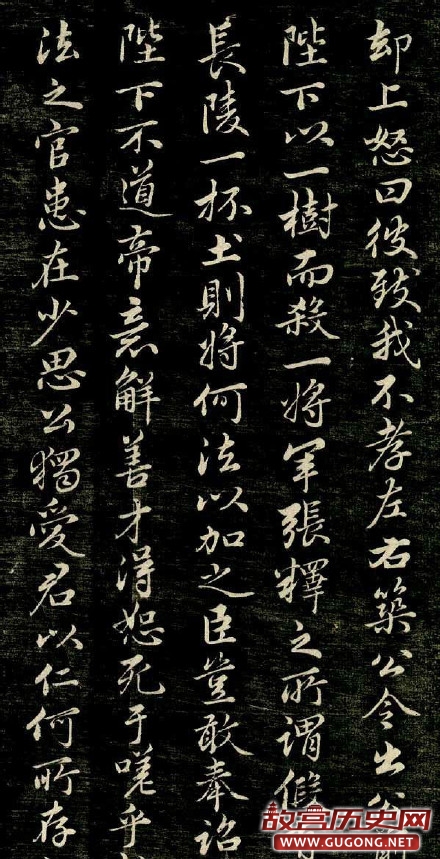 却上怒曰彼致我不孝左右築公令出公
陛下以一樹而殺一將軍張釋之所謂假
長陵一抔土則將何法以加之臣豈敢奉詔
陛下不道帝意解善才得恕死于嗟乎
法之官患在少思公獨愛君以仁何所存
故宫历史网
www.GUGONG.NET